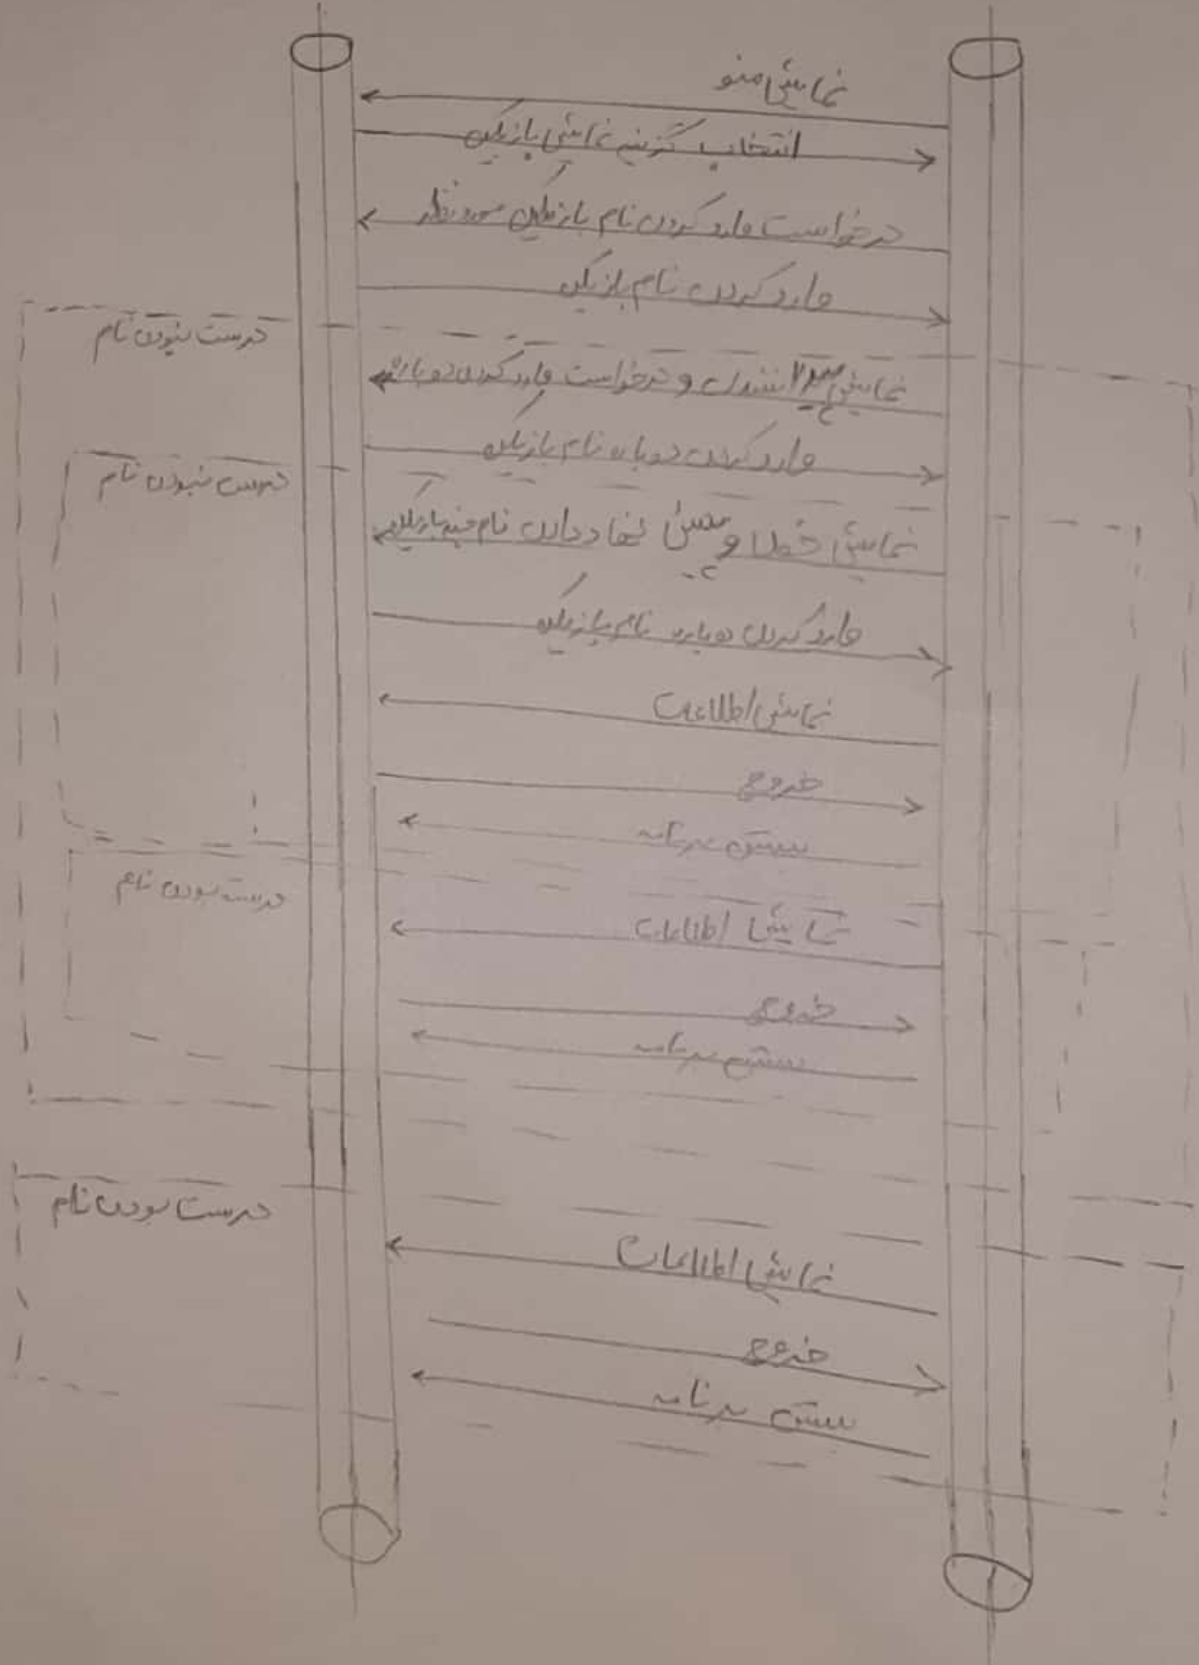 نمایش منو
انتخاب گزینه نمایش بازیکن
درخواست وارد کردن نام بازیکن مورد نظر
وارد کردن نام بازیکن
درست نبودن نام
نمایش پیدا نشدن و درخواست وارد کردن دوباره
وارد کردن دوباره نام بازیکن
درست نبودن نام
نمایش خطا و پیشنهاد دادن نام چند بازیکن
وارد کردن دوباره نام بازیکن
نمایش اطلاعات
خروج
بستن برنامه
درست بودن نام
نمایش اطلاعات
خروج
بستن برنامه
درست بودن نام
نمایش اطلاعات
خروج
بستن برنامه